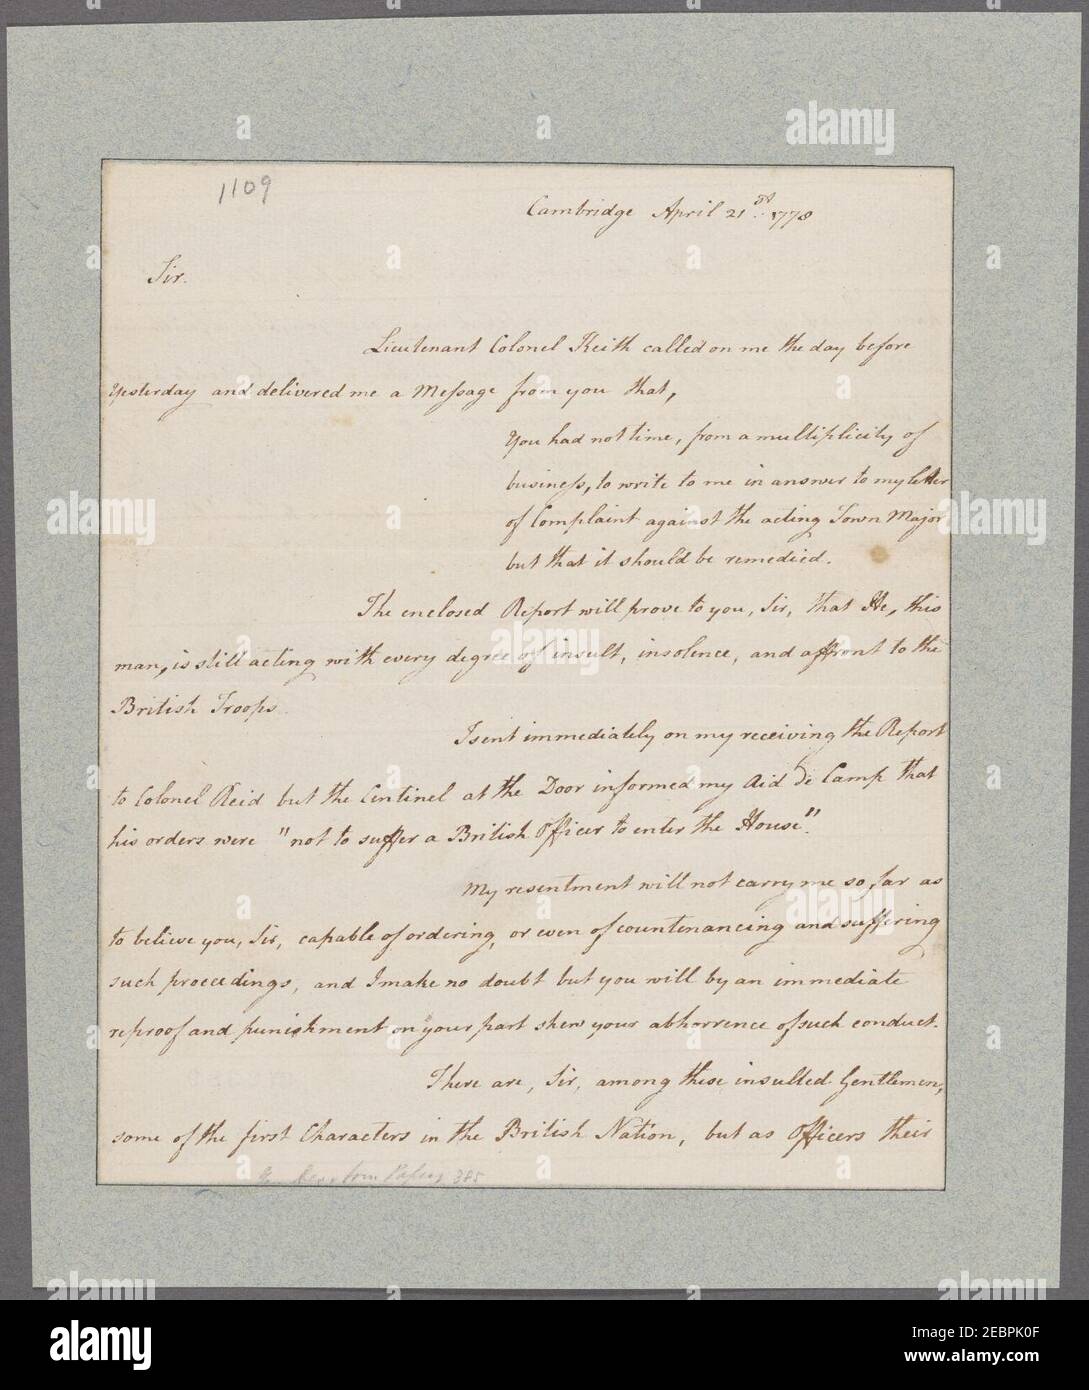 1109
Cambridge April 21st. 1778
Sir.
Lieutenant Colonel Keith called on me the day before
yesterday and delivered me a Message from you that,
You had not time, from a multiplicity of
business, to write to me in answer to my letter
of Complaint against the acting Town Major
but that it should be remedied.
The enclosed Report will prove to you, Sir, that He, this
man, is still acting with every degree of insult, insolence, and affront to the
British Troops.
I sent immediately on my receiving the Report
to Colonel Reid but the Centinel at the Door informed my Aid de Camp that
his orders were "not to suffer a British Officer to enter the House".
My resentment will not carry me so far as
to believe you, Sir, capable of ordering, or even of countenancing and suffering
such proceedings, and I make no doubt but you will by an immediate
reproof and punishment on your part shew your abhorrence of such conduct.
There are, Sir, among these insulted Gentlemen,
some of the first Characters in the British Nation, but as Officers their
Papers 385
alamy
Image ID: 2EBPK0F
www.alamy.com